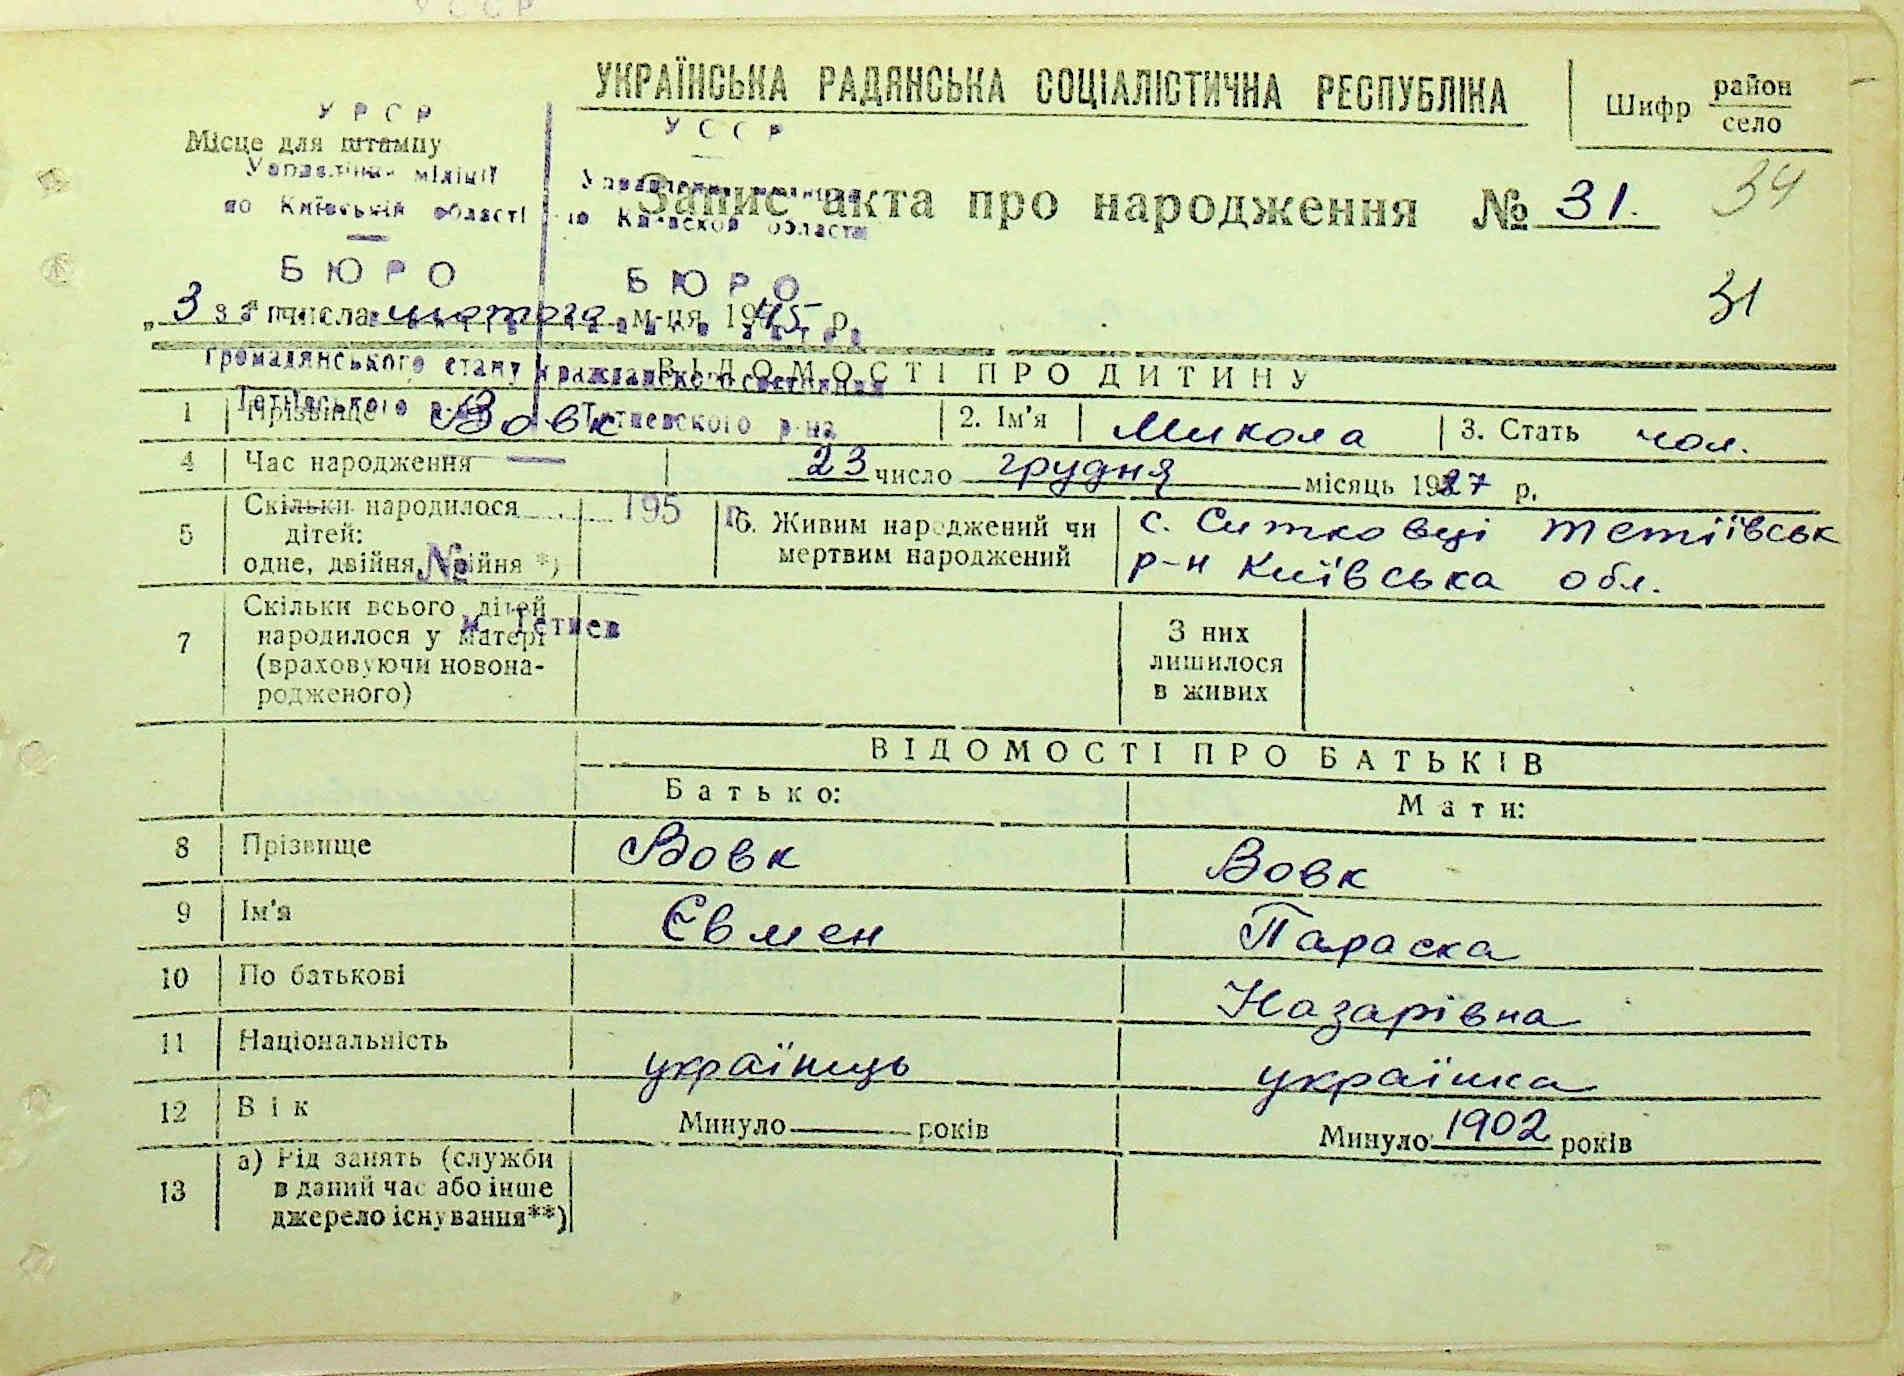 УКРАЇНСЬКА РАДЯНСЬКА СОЦІАЛІСТИЧНА РЕСПУБЛІКА
Шифр район
село
УРСР
УССР
Місце для штампу
Управління міліції
по Київській області
Киевской области
Запис акта про народження № 31.
34
БЮРО
БЮРО
31
„3" числа лютого м-ця 1945 р.
громадянського стану
гражданского состояния
ВІДОМОСТІ ПРО ДИТИНУ
Тетіївського р-ну
Тетиевского р-на
1 Прізвище Вовк 2. Ім'я Микола 3. Стать чол.
4 Час народження 23 число грудня місяць 1927 р.
5 Скільки народилося
дітей:
одне, двійня, трійня *)
195 г.
№
6. Живим народжений чи
мертвим народжений
с. Ситковці Тетіївськ
р-н Київська обл.
м. Тетиев
7 Скільки всього дітей
народилося у матері
(враховуючи новона-
родженого)
З них
лишилося
в живих
ВІДОМОСТІ ПРО БАТЬКІВ
Батько: Мати:
8 Прізвище Вовк Вовк
9 Ім'я Євмен Параска
10 По батькові Назарівна
11 Національність україниць українка
12 Вік Минуло — років Минуло 1902 років
13 а) Рід занять (служби
в даний час або інше
джерело існування**)